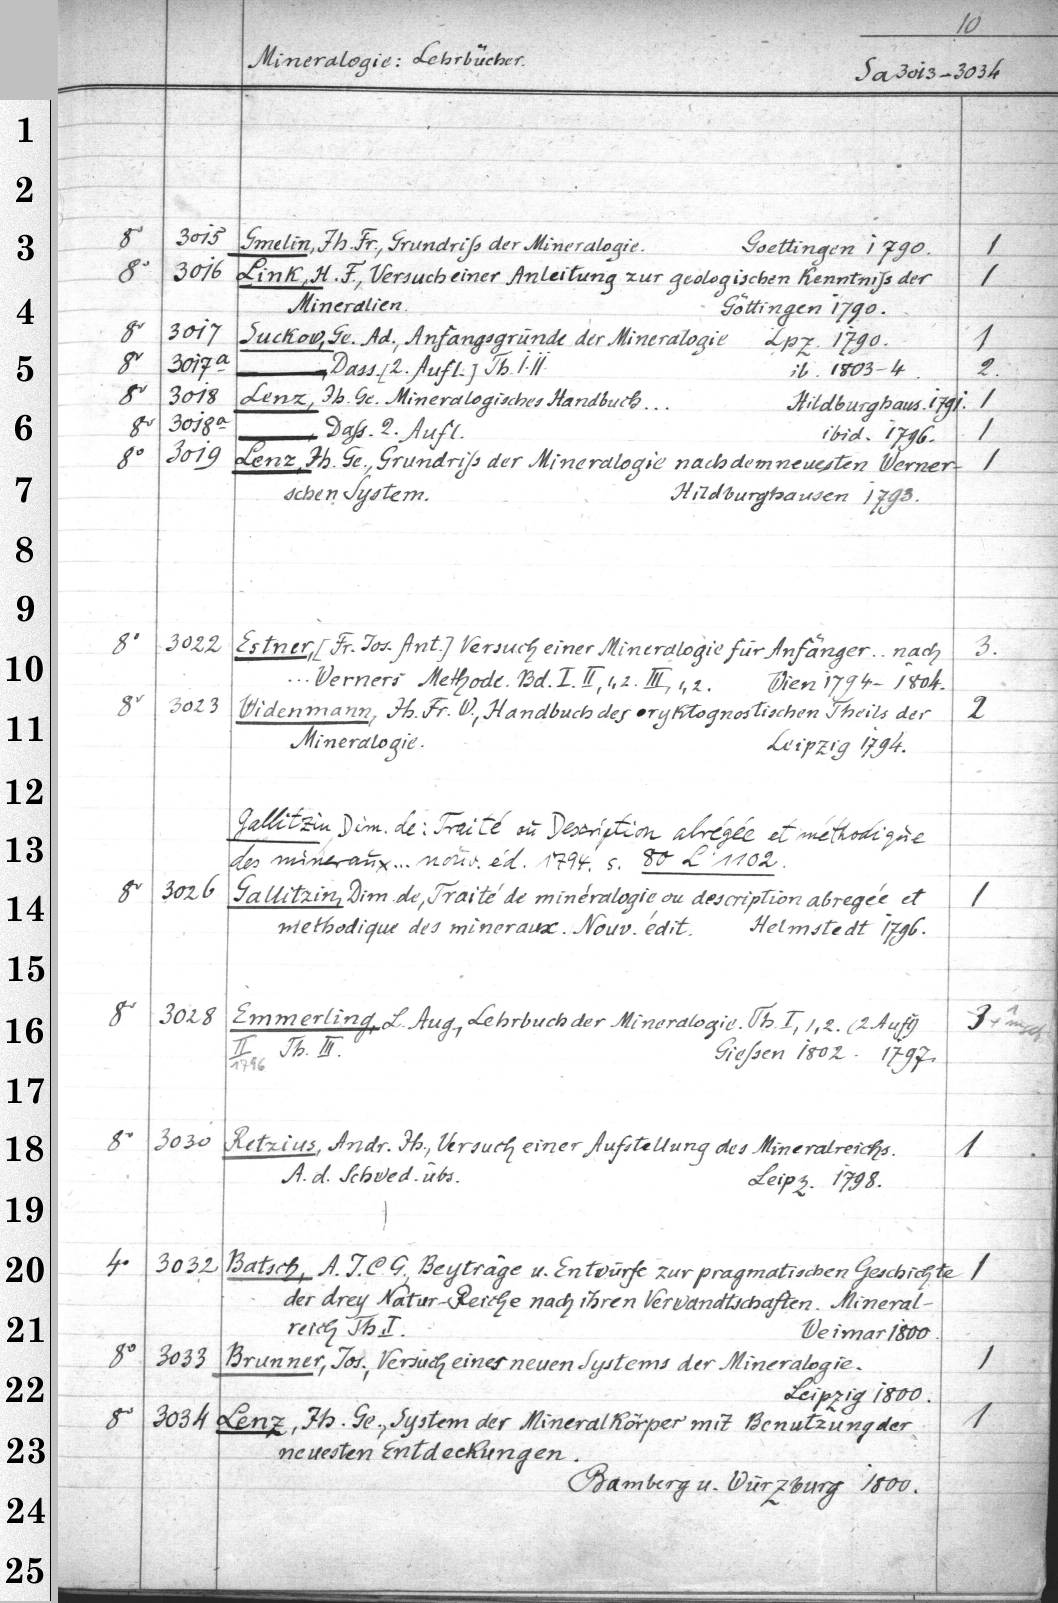 10
Mineralogie: Lehrbücher. Sa 3013-3034
1
2
3
8° 3015 Gmelin, Jh. Fr., Grundriß der Mineralogie. Goettingen 1790. 1
8° 3016 Link, H. F., Versuch einer Anleitung zur geologischen Kenntniß der 1
4 Mineralien. Göttingen 1790.
8° 3017 Suckow, Ge. Ad., Anfangsgründe der Mineralogie Lpz. 1790. 1
5 8° 3017a ———, Dass. [2. Aufl.] Th. I. II. ib. 1803-4. 2.
8° 3018 Lenz, Jh. Ge. Mineralogisches Handbuch ... Hildburghaus. 1791. 1
6 8° 3018a ———, Daß. 2. Aufl. ibid. 1796. 1
8° 3019 Lenz, Jh. Ge., Grundriß der Mineralogie nach dem neuesten Werner- 1
7 schen System. Hildburghausen 1793.
8
9
8° 3022 Estner, [Fr. Jos. Ant.] Versuch einer Mineralogie für Anfänger .. nach 3.
10 ... Werners Methode. Bd. I. II, 1,2. III, 1,2. Wien 1794-1804.
8° 3023 Widenmann, Jh. Fr. W., Handbuch des oryktognostischen Theils der 2
11 Mineralogie. Leipzig 1794.
12
Gallitzin Dim. de: Traité ou Description abrégée et méthodique
13 des minéraux... nouv. éd. 1794. s. 8° L 1102.
8° 3026 Gallitzin, Dim. de, Traité de minéralogie ou description abregée et 1
14 methodique des mineraux. Nouv. édit. Helmstedt 1796.
15
8° 3028 Emmerling, L. Aug., Lehrbuch der Mineralogie. Th. I, 1,2. (2 Aufl) 3
16 II Th. III. Giessen 1802. 1797.
1796
17
18 8° 3030 Retzius, Andr. Jh., Versuch einer Aufstellung des Mineralreichs. 1
A. d. Schwed. übs. Leipz. 1798.
19
20 4° 3032 Batsch, A. J. C G, Beyträge u. Entwürfe zur pragmatischen Geschichte 1
der drey Natur-Reiche nach ihren Verwandtschaften. Mineral-
21 reich Th I. Weimar 1800.
8° 3033 Brunner, Jos., Versuch eines neuen Systems der Mineralogie. 1
22 Leipzig 1800.
8° 3034 Lenz, Jh. Ge., System der Mineralkörper mit Benutzung der 1
23 neuesten Entdeckungen.
Bamberg u. Würzburg 1800.
24
25